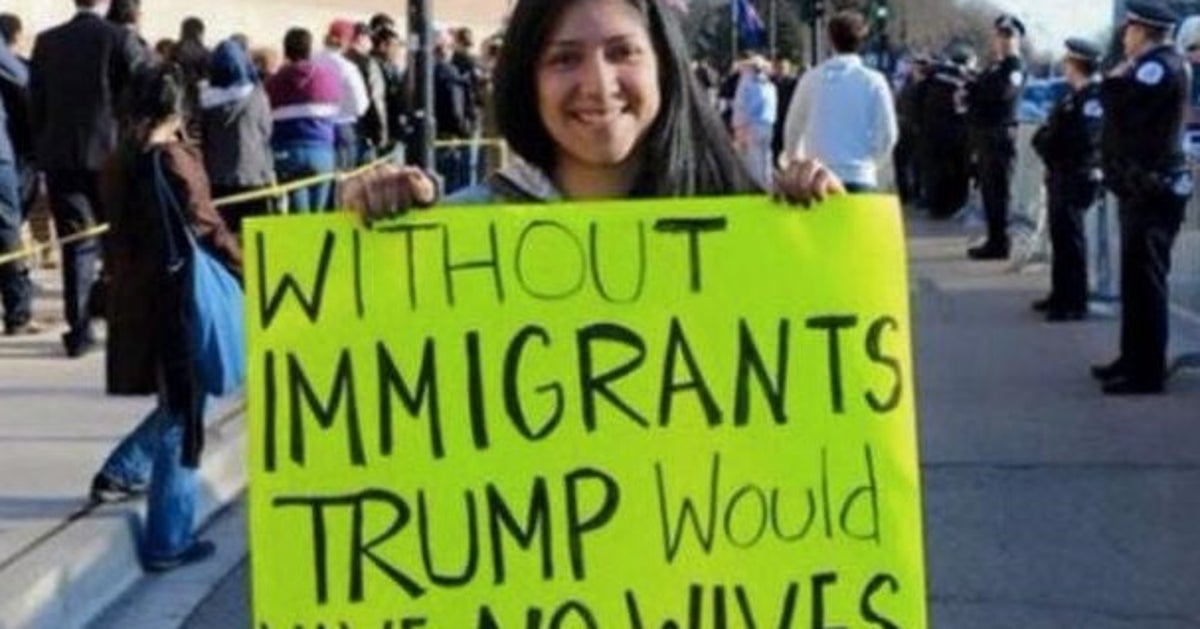 WITHOUT
IMMIGRANTS
TRUMP Would
HAVE NO WIVES